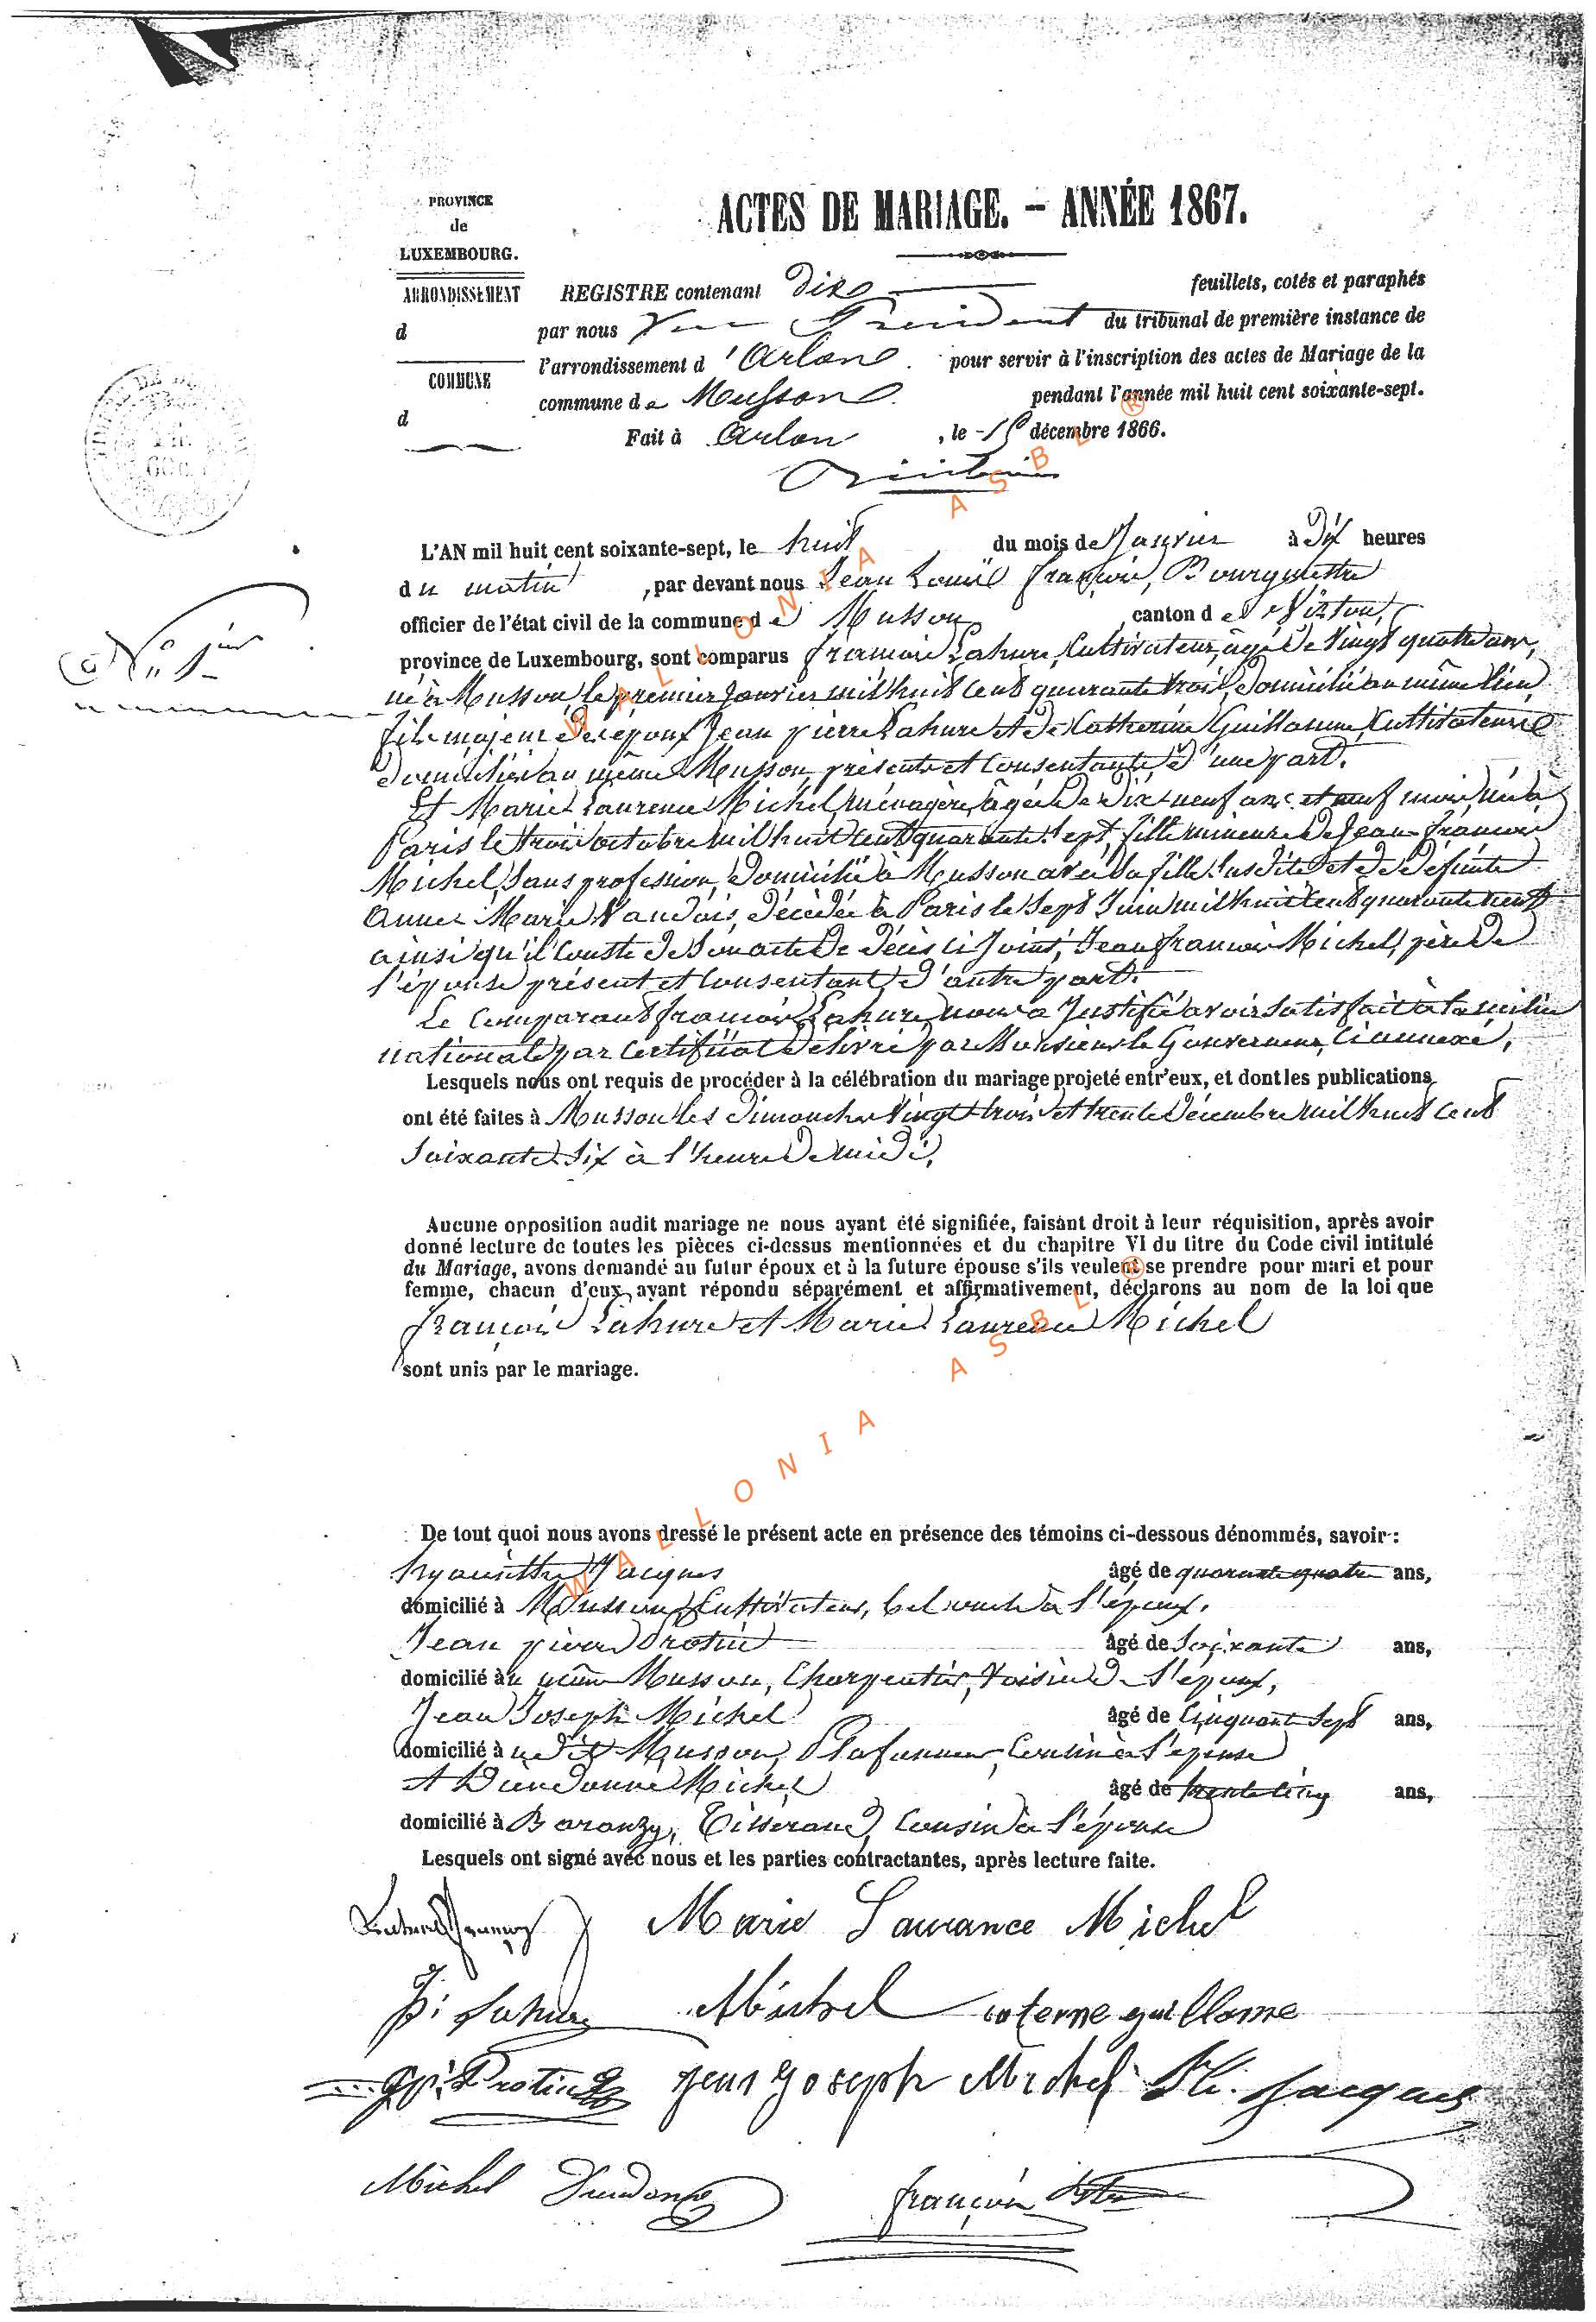 PROVINCE
de
LUXEMBOURG.
ARRONDISSEMENT
d
COMMUNE
d
ACTES DE MARIAGE. – ANNÉE 1867.
REGISTRE contenant dix feuillets, cotés et paraphés
par nous Vice Président du tribunal de première instance de
l'arrondissement d'Arlon. pour servir à l'inscription des actes de Mariage de la
commune de Musson pendant l'année mil huit cent soixante-sept.
Fait à Arlon, le 15 décembre 1866.
N° 1er
L'AN mil huit cent soixante-sept, le huit du mois de Janvier à dix heures
du matin, par devant nous Jean Louis françois, Bourgmestre
officier de l'état civil de la commune de Musson canton de Virton,
province de Luxembourg, sont comparus françois Lahure, Cultivateur, âgé de vingt quatre ans,
né à Musson, le premier Janvier mil huit cent quarante trois, domicilié au même lieu
fils majeur des époux Jean pierre Lahure et de Catherine Guillaume, Cultivateurs
domiciliés au même Musson, présents et consentants, d'une part.
Et Marie Laurence Michel, ménagère, âgée de dix neuf ans et neuf mois, née à
Paris le trois octobre mil huit cent quarante sept, fille mineure de Jean françois
Michel, Sans profession, domicilié à Musson avec sa fille susdite et de défunte
Anne Marie Vaudois, décédée à Paris le sept Juin mil huit cent quarante neuf
ainsi qu'il conste de son acte de décès ci Joint, Jean françois Michel, père de
l'épouse présent et consentant, d'autre part.
Le Comparant françois Lahure nous a Justifié avoir satisfait à la milice
nationale par certificat délivré par Monsieur le Gouverneur, ci annexé,
Lesquels nous ont requis de procéder à la célébration du mariage projeté entr'eux, et dont les publications
ont été faites à Musson les dimanches vingt-trois et trente décembre mil huit cent
soixante six à l'heure de midi,
Aucune opposition audit mariage ne nous ayant été signifiée, faisant droit à leur réquisition, après avoir
donné lecture de toutes les pièces ci-dessus mentionnées et du chapitre VI du titre du Code civil intitulé
du Mariage, avons demandé au futur époux et à la future épouse s'ils veulent se prendre pour mari et pour
femme, chacun d'eux ayant répondu séparément et affirmativement, déclarons au nom de la loi que
françois Lahure et Marie Laurence Michel
sont unis par le mariage.
De tout quoi nous avons dressé le présent acte en présence des témoins ci-dessous dénommés, savoir :
hyacinthe Jacques âgé de quarante quatre ans,
domicilié à Musson, Cultivateur, bel oncle à l'époux,
Jean pierre Protin âgé de Soixante ans,
domicilié au même Musson, Charpentier, Voisin de l'époux,
Jean Joseph Michel âgé de Cinquante sept ans,
domicilié à udit Musson, Plafonneur, Cousin à l'épouse
et Dieudonné Michel âgé de trente cinq ans,
domicilié à Baranzy, Tisserand, Cousin à l'épouse
Lesquels ont signé avec nous et les parties contractantes, après lecture faite.
Lahure françois Marie Laurance Michel
J: p: Lahure Michel caterne guillame
J p: Protin jean joseph Michel Hi. Jacques
Michel Dieudonné françois
WALLONIA ASBL ®
WALLONIA ASBL ®